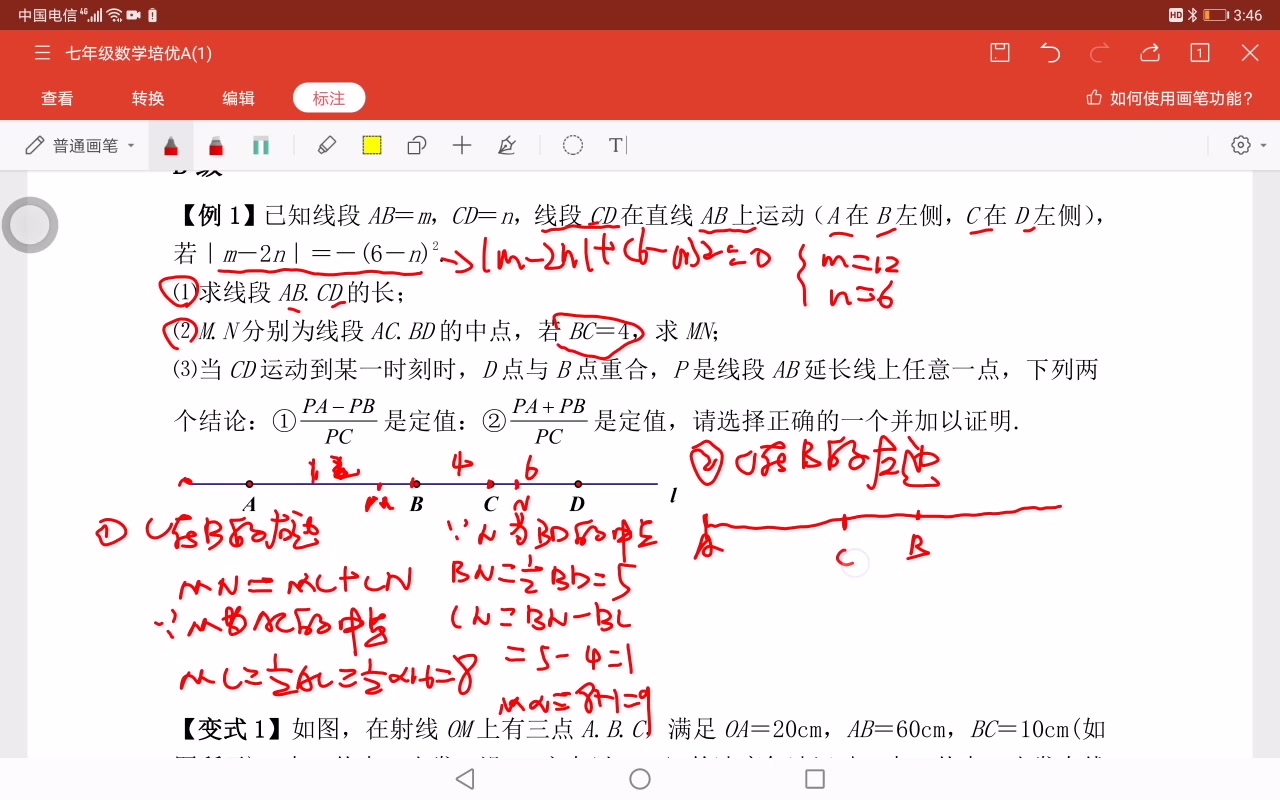 中国电信 4G
HD 3:46
七年级数学培优A(1)
1
查看 转换 编辑 标注
如何使用画笔功能?
普通画笔 T
【例1】已知线段 AB=m, CD=n, 线段 CD在直线 AB上运动(A在 B左侧, C在 D左侧),
若|m-2n|=-(6-n)² → |m-2n|+(6-n)2=0 { m=12
n=6
⑴求线段 AB.CD的长;
⑵M.N分别为线段 AC.BD的中点, 若 BC=4, 求 MN;
⑶当 CD运动到某一时刻时, D点与 B点重合, P是线段 AB延长线上任意一点, 下列两
个结论: ①(PA-PB)/PC 是定值: ②(PA+PB)/PC 是定值, 请选择正确的一个并加以证明.
② C在B的左边
12 4 6
A M B C N D l
① C在B的右边
∵N为BD的中点
A C B
MN=MC+CN
BN=1/2BD=5
∵M为AC的中点
CN=BN-BC
=5-4=1
MC=1/2AC=1/2×16=8
MN=8+1=9
【变式1】如图, 在射线 OM上有三点 A.B.C, 满足 OA=20cm, AB=60cm, BC=10cm(如